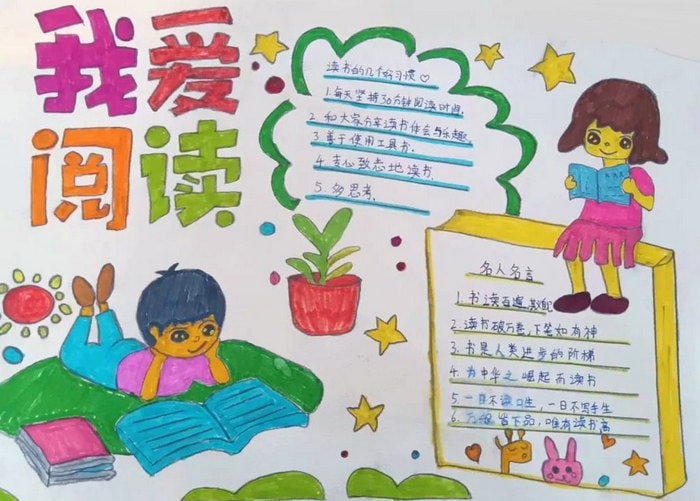 我爱
阅读
读书的几个好习惯♡
1.每天坚持30分钟阅读时间.
2.和大家分享读书体会与乐趣.
3.善于使用工具书.
4.专心致志地读书.
5.多思考.
名人名言
1.书读百遍,其
2.读书破万卷,下笔如有神
3.书是人类进步的阶梯
4.为中华之崛起而读书
5.一日不读口生,一日不写手生
6.万般皆下品,唯有读书高